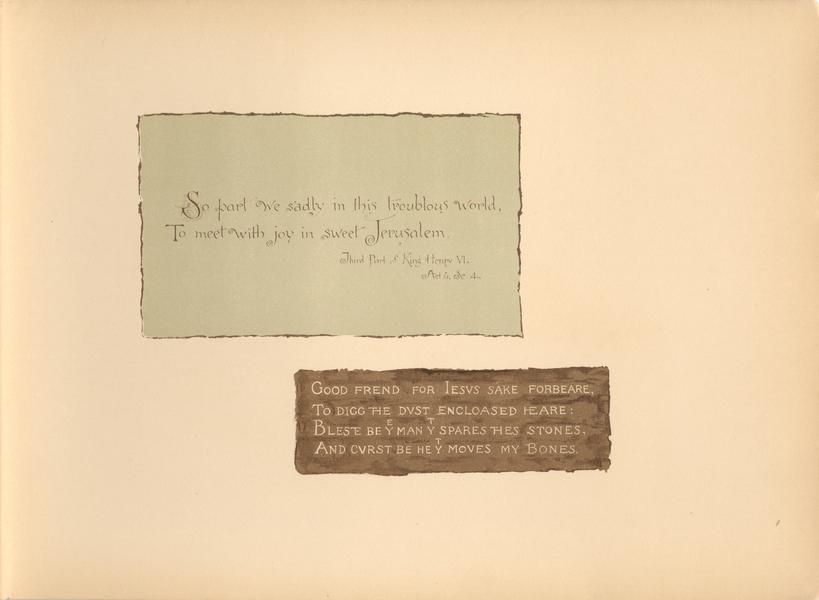 So part we sadly in this troublous world,
To meet with joy in sweet Jerusalem.
Third Part of King Henry VI.
Act 5, Sc. 4.
GOOD FREND FOR IESVS SAKE FORBEARE,
TO DIGG THE DVST ENCLOASED HEARE:
BLESTE BE Yᴱ MAN Yᵀ SPARES THES STONES,
AND CVRST BE HE Yᵀ MOVES MY BONES.